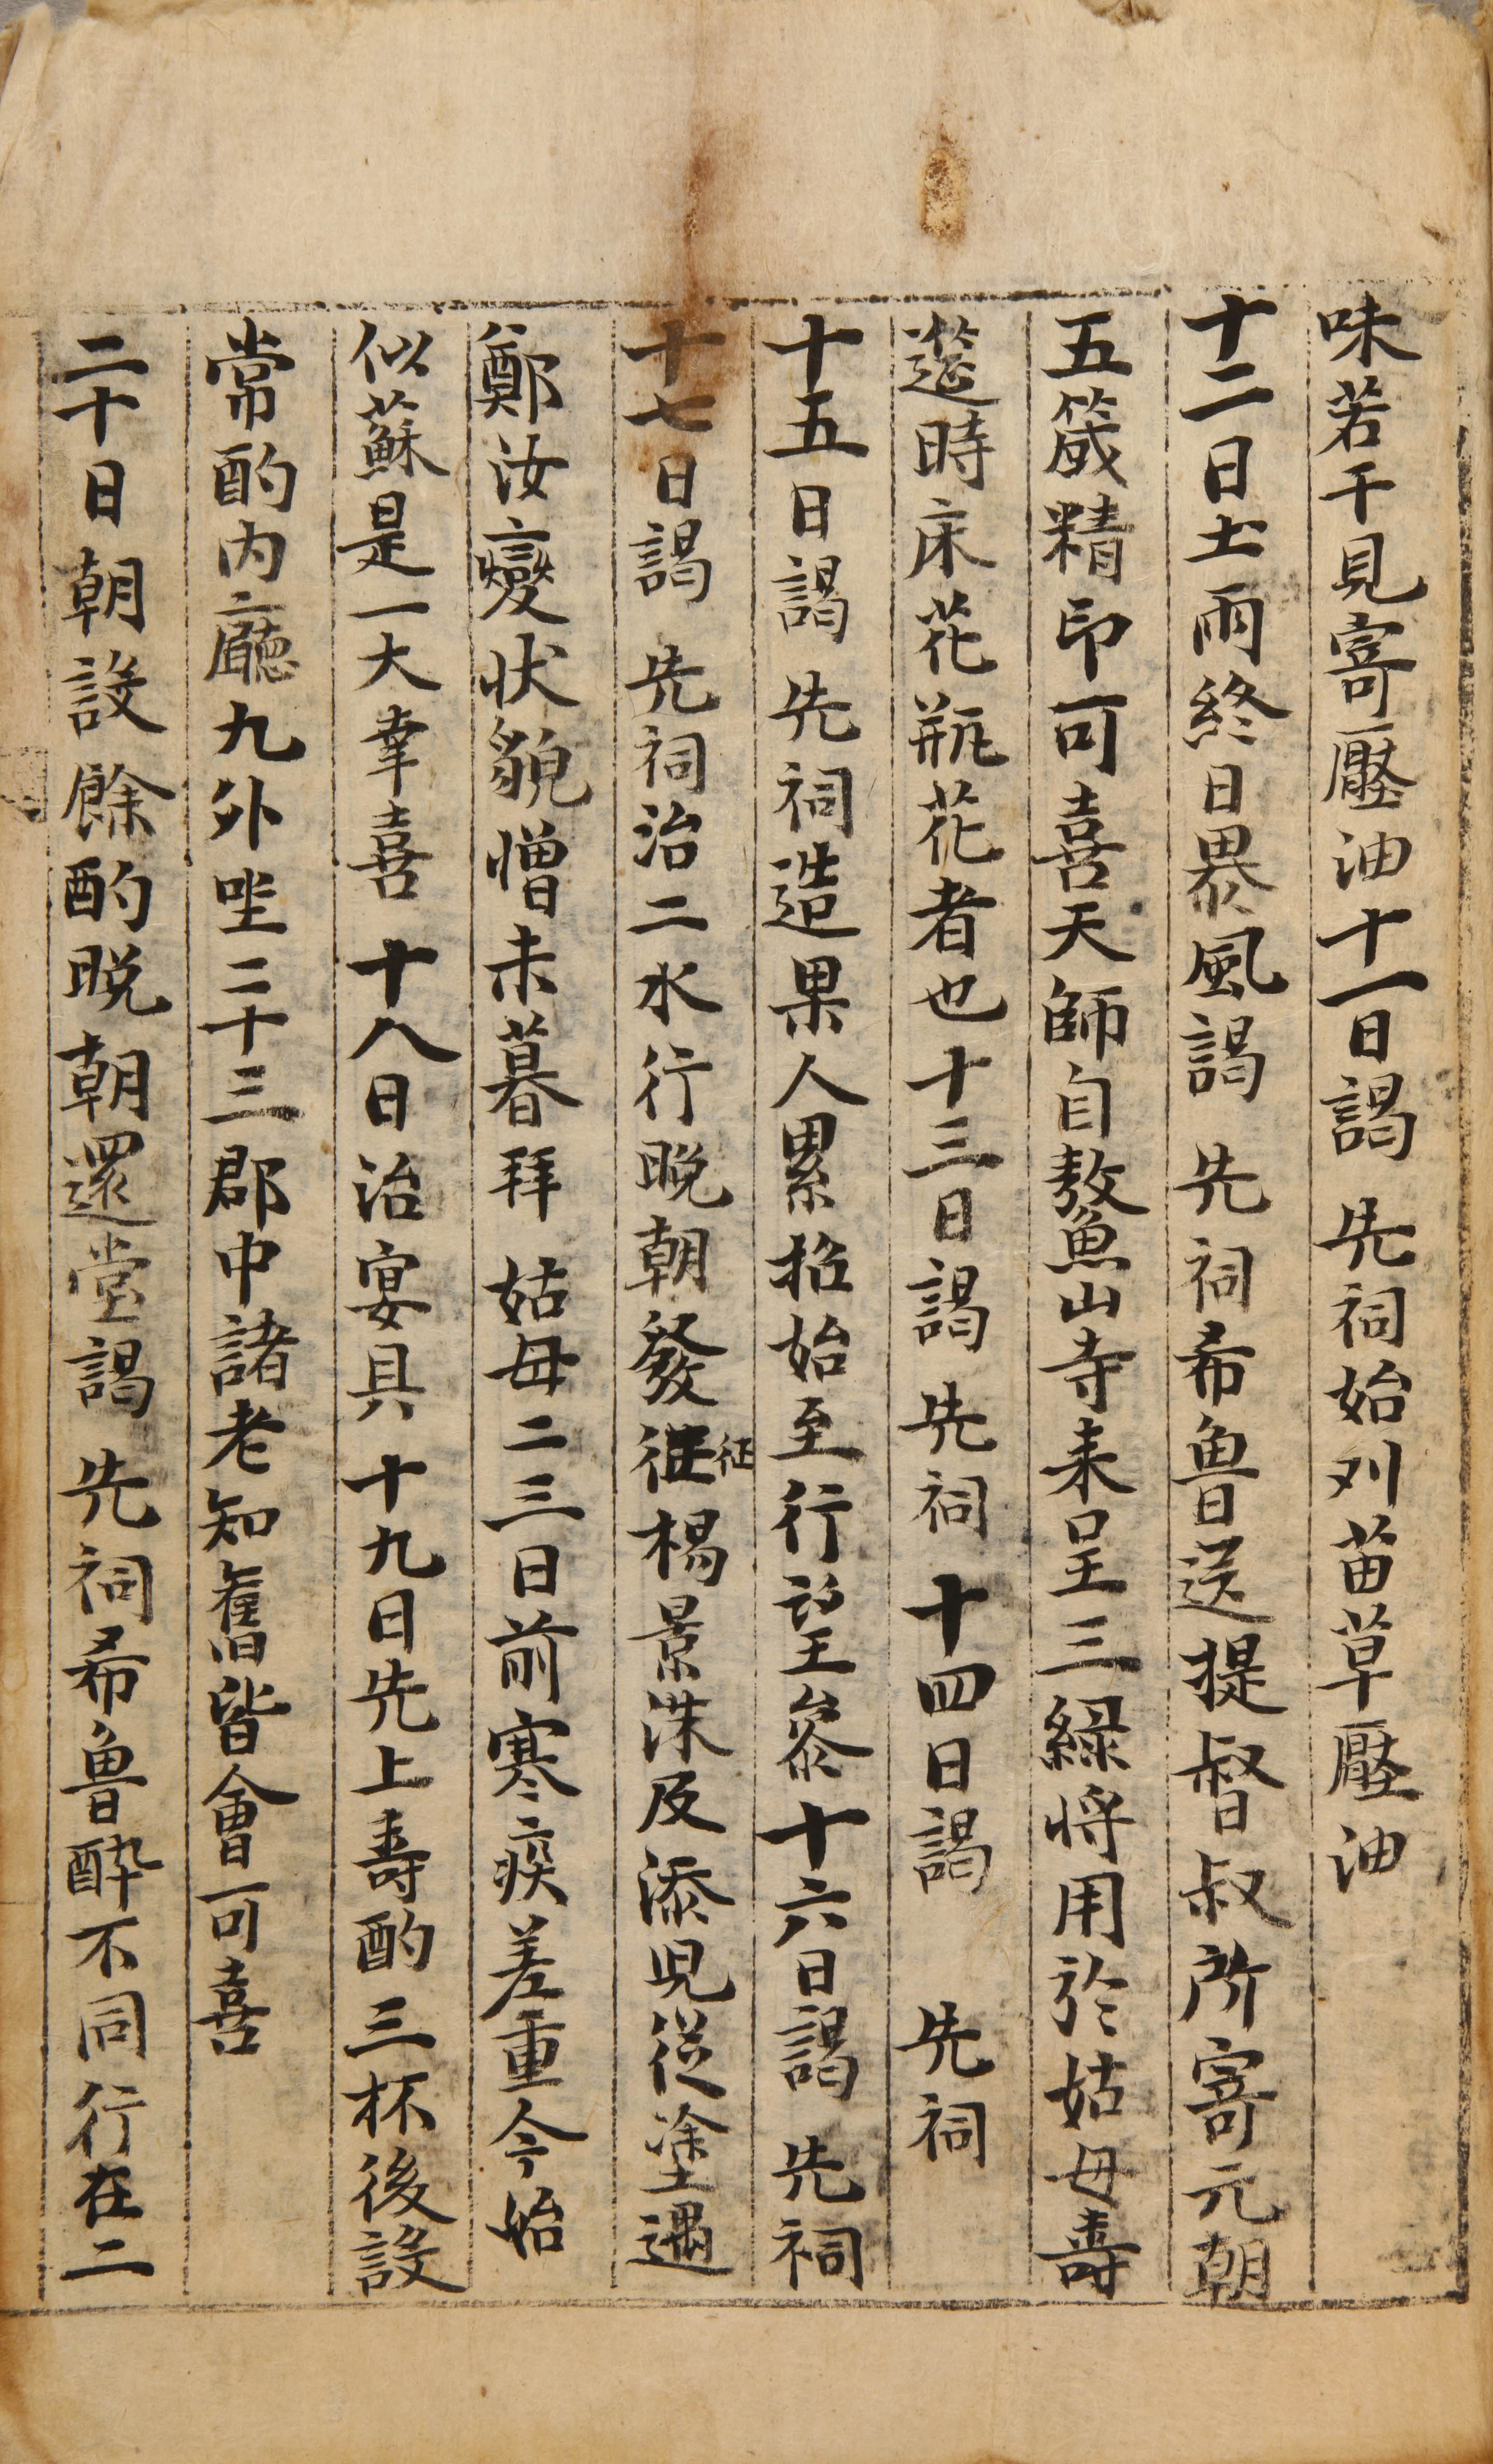 味若干見寄壓油十一日謁 先祠始刈苗草壓油
十二日土雨終日暴風謁 先祠希魯送提督叔所寄元朝
五箴精印可喜天師自鰲山寺来呈三綠将用於姑母壽
筵時床花瓶花者也十三日謁 先祠十四日謁 先祠
十五日謁 先祠造果人累招始至行望奠十六日謁 先祠
十七日謁 先祠治二水行晩朝發征楊景洙及添児從塗遇
征
鄭汝燮状貌憎未暮拜 姑母二三日前寒疾差重今始
似蘇是一大幸喜 十八日治宴具 十九日先上壽酌三杯後設
常酌内廳九外坐二十三郡中諸老知舊皆會可喜
二十日朝設餘酌晩朝還堂謁 先祠希魯醉不同行在二